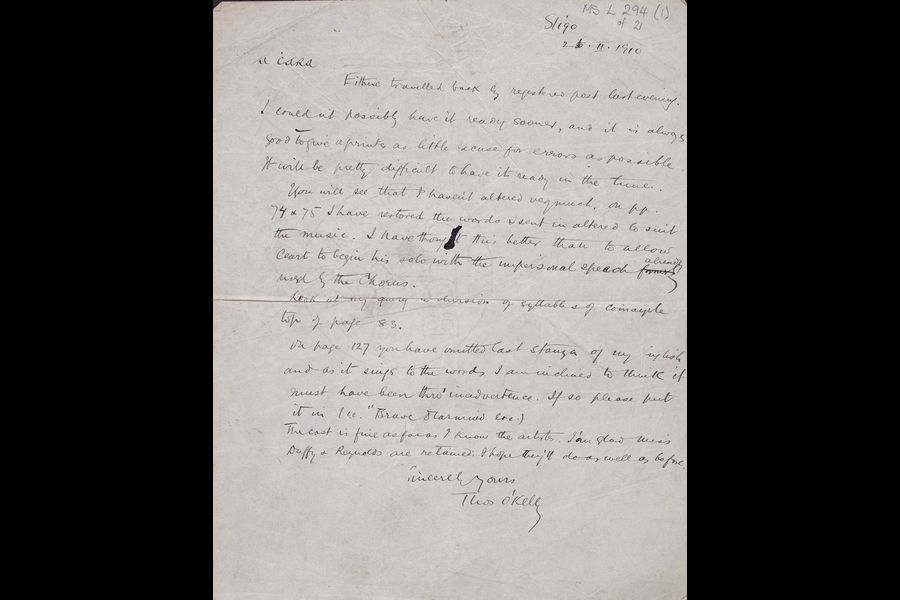 MS L 294 (1)
of 2
Sligo
26.11.1910
a cara
Eithne travelled back by registered post last evening.
I couldn't possibly have it ready sooner, and it is always
good to give a printer as little excuse for errors as possible.
It will be pretty difficult to have it ready in the time.
You will see that I haven't altered very much. On pp.
74 & 75 I have restored the words I sent in altered to suit
the music. I have thought this better than to allow
Ceart to begin his solo with the impersonal speech already
used by the Chorus.
Look at my query in division of syllables of
top of page 83.
On page 127 you have omitted last stanza of my English
and as it sings to the words I am inclined to think it
must have been thro' inadvertence. If so please put
it in (i.e. "Brave Diarmuid etc.)
The cast is fine as far as I know the artists. I'm glad Miss
Duffy & Reynolds are retained. I hope they'll do as well as before.
Sincerely yours
Thos O'Kelly